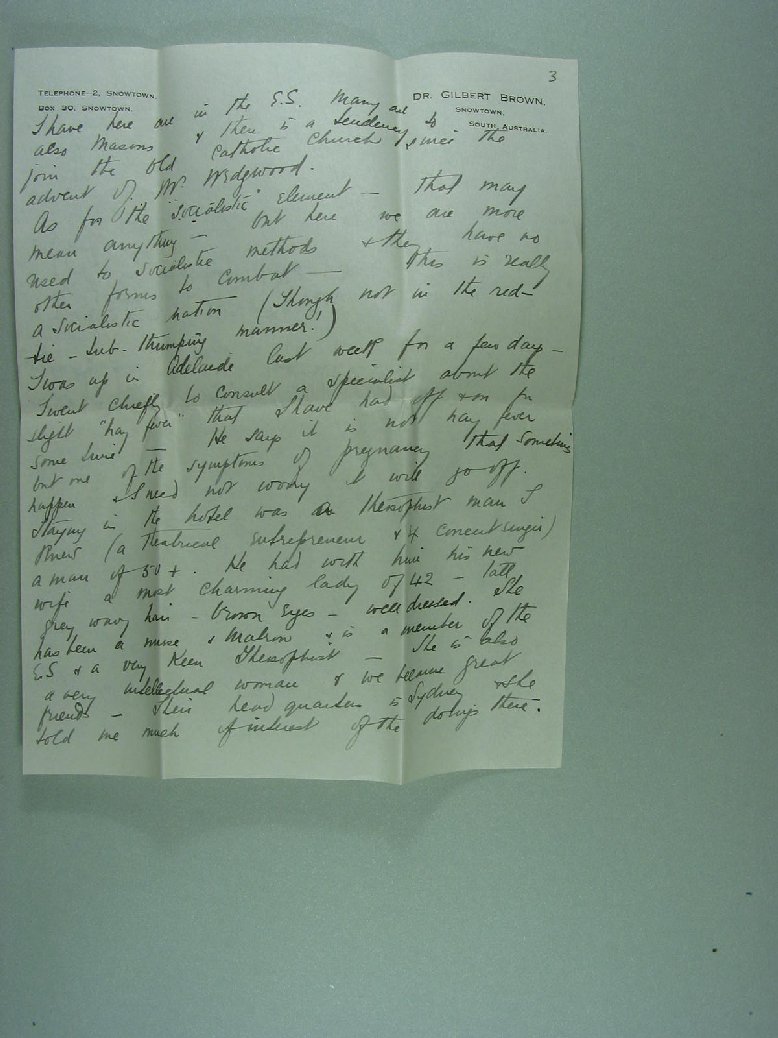 3
TELEPHONE 2, SNOWTOWN.
BOX 30, SNOWTOWN.
DR. GILBERT BROWN,
SNOWTOWN,
SOUTH AUSTRALIA.
I have here are in the E.S. Many are
also Masons & there is a tendency to
join the Old Catholic Church since the
advent of Mr. Wedgwood.
As for the "socialistic" element — that may
mean anything — but here we are more
used to socialistic methods & they have no
other forms to combat — This is really
a socialistic nation (though not in the red-
tie-tub-thumping manner!)
I was up in Adelaide last week for a few days —
I went chiefly to consult a specialist about the
slight "hay fever" that I have had off & on for
some time — He says it is not hay fever
but one of the symptoms of pregnancy that sometimes
happen & I need not worry it will go off.
Staying in the hotel was a theosophist man I
knew (a theatrical entrepreneur & concert singer)
a man of 50 +. He had with him his new
wife a most charming lady of 42 — tall
grey wavy hair — brown eyes — well dressed. She
has been a nurse & Matron & is a member of the
E.S & a very keen Theosophist — She is also
a very intellectual woman & we became great
friends — Their head quarters is Sydney & she
told me much of interest of the doings there.